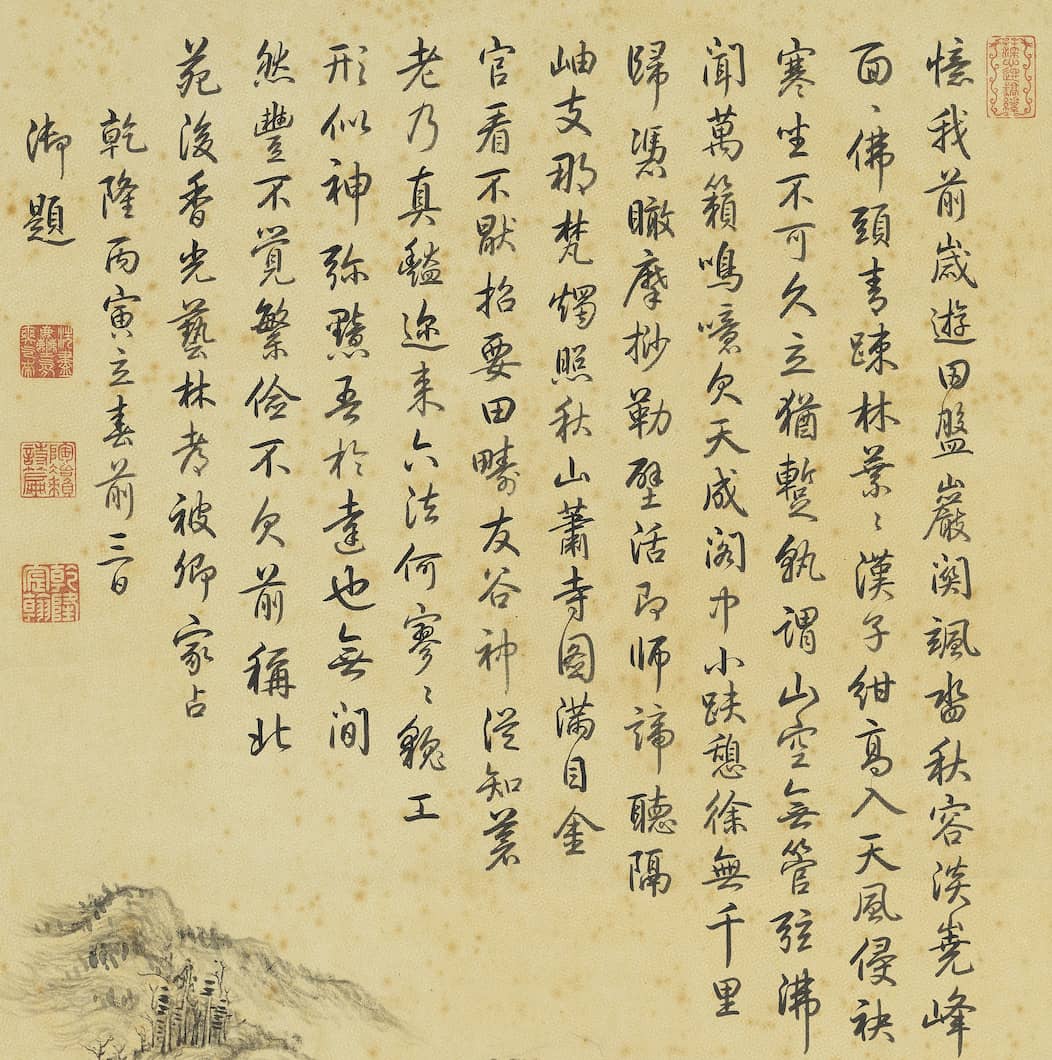 憶我前嵗遊田盤巖關颯沓秋容淡嶤峰
面〻佛頭青踈林葉〻漢子紺高入天風侵袂
寒坐不可久立猶蹔孰謂山空無管弦沸
聞萬籟鳴噫欠天成阁中小趺憩徐無千里
歸憑瞰摩挱勒壁活即师諦聽隔
岫支那梵燭照秋山蕭寺圖满目金
官看不厭招要田疇友谷神從知蓍
老乃真豁迩来六法何寥〻貌工
形似神弥黪吾於達也無间
然豐不覺繁儉不欠前稱北
苑後香光藝林考被卿家占
乾隆丙寅立春前三日
御題
乾隆
宸翰